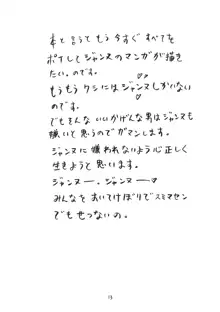 本と言うてもう今すぐすべてを
ポイしてジャンヌのマンガが描き
たい。のです。
もうもうワシにはジャンヌしかいない
のです。
でもそんないいかげんな男はジャンヌも
嫌いと思うのでガマンします。
ジャンヌに嫌われないよう心正しく
生きようと思います。
ジャンヌー、ジャンヌー♡
みんなをおいてけぼりでスミマセン
でもせつないの。
13